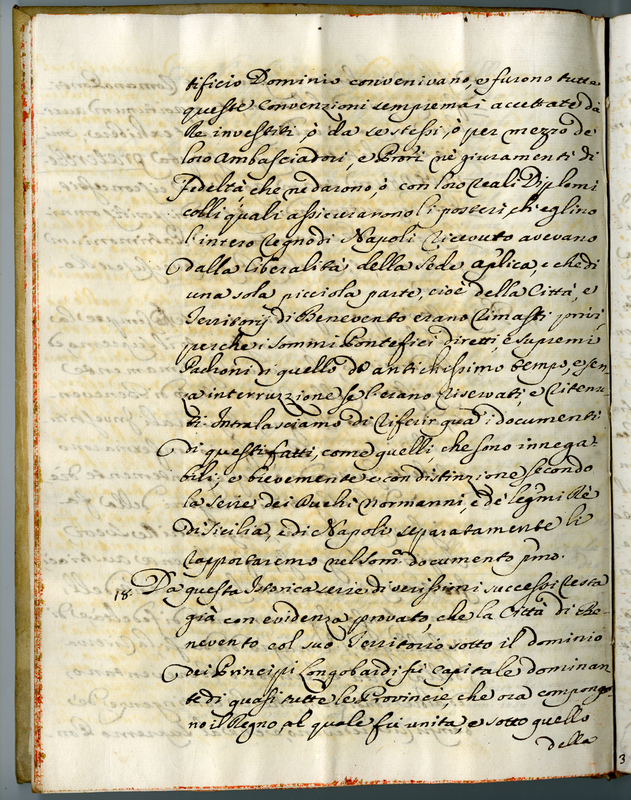 tificio Dominio convenivano, e furono tutte
queste Convenzioni sempremai accettate da
Re investiti, ò da se stessi, ò per mezzo de
loro Ambasciadori, e Prori nè giuramenti di
Fedeltà, che ne darono, ò con loro Reali Diplomi
colli quali assicurarono li posteri, ch'eglino
l'intero Regno di Napoli ricevuto avevano
dalla liberalità della Sede aplica, e che di
una sola picciola parte, cioè della Città, e
Territorij di Benevento erano rimasti privi,
perche i Sommi Pontefici diretti, e supremi
Padroni di quello da antichissimo tempo, e sen,
a interruzzione se l'erano riservati, e ritenu,
ti. Intralasciamo di riferir quà i documenti
di questi fatti, come quelli che sono innega,
bili, e brevemente e con distinzione secondo
la serie dei Duchi Normanni, e de legmi Rè
di Sicilia, e di Napoli separatamente li
rapportaremo nel Som.º documento pmo.
18. Da questa Istorica serie di verissimi successi resta
già con evidenza provato, che la Città di Be-
nevento col suo Territorio sotto il dominio
dei Principi Longobardi fù Capitale dominan
te di quasi tutte le Provincie, che ora compongo
no il Regno, al quale fù unita, e sotto quello
della
3